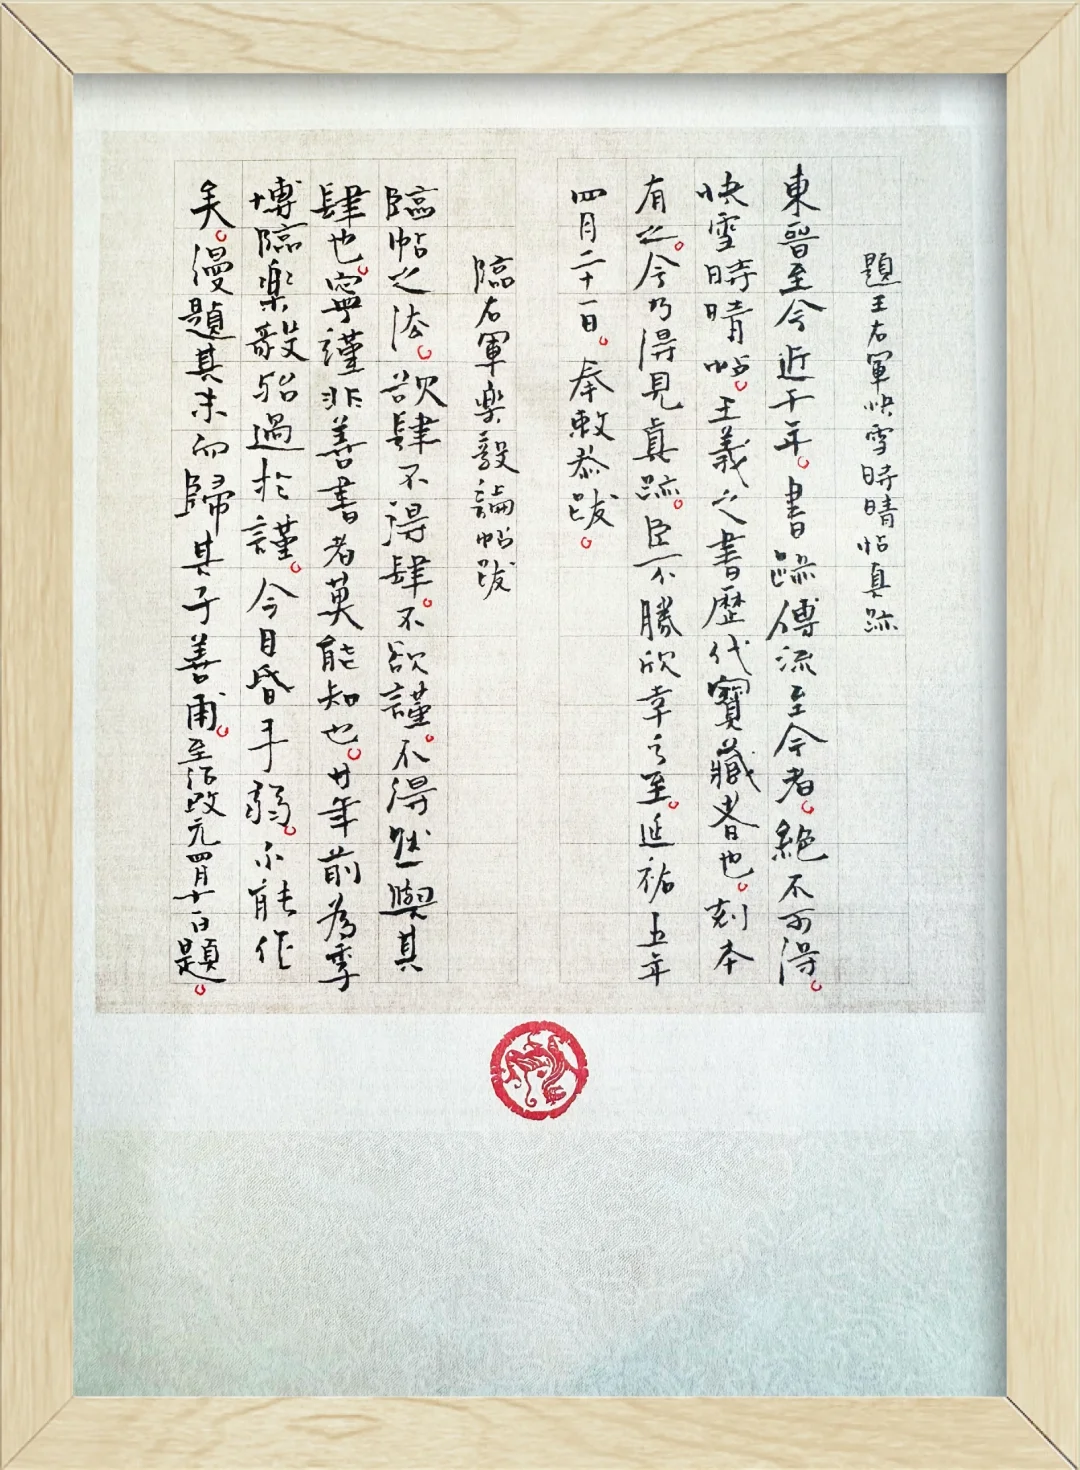 題王右軍快雪時晴帖真跡
東晉至今近千年。書跡傳流至今者。絕不可得。
快雪時晴帖。王羲之書歷代寶藏者也。刻本
有之。今乃得見真跡。臣不勝欣幸之至。延祐五年
四月二十一日。奉敕恭跋。
臨右軍樂毅論帖跋
臨帖之法。欲肆不得肆。不欲謹。不得然與其
肆也。寧謹非善書者莫能知也。廿年前為季
博臨樂毅殆過於謹。今目昏手弱。不能作
矣。漫題其末而歸其子善甫。至治改元四月十日題。